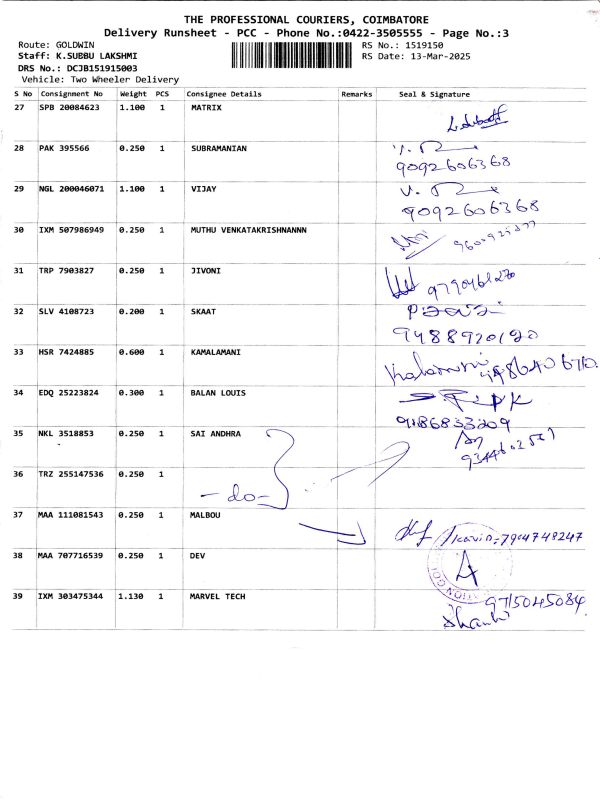 THE PROFESSIONAL COURIERS, COIMBATORE
Delivery Runsheet - PCC - Phone No.:0422-3505555 - Page No.:3
Route: GOLDWIN RS No.: 1519150
Staff: K.SUBBU LAKSHMI RS Date: 13-Mar-2025
DRS No.: DCJB151915003
Vehicle: Two Wheeler Delivery
S No Consignment No Weight PCS Consignee Details Remarks Seal & Signature
27 SPB 20084623 1.100 1 MATRIX
28 PAK 395566 0.250 1 SUBRAMANIAN
9092606368
29 NGL 200046071 1.100 1 VIJAY
9092606368
30 IXM 507986949 0.250 1 MUTHU VENKATAKRISHNANNN
31 TRP 7903827 0.250 1 JIVONI
32 SLV 4108723 0.200 1 SKAAT
9488920120
33 HSR 7424885 0.600 1 KAMALAMANI
34 EDQ 25223824 0.300 1 BALAN LOUIS
9186833209
35 NKL 3518853 0.250 1 SAI ANDHRA
36 TRZ 255147536 0.250 1
-do-
37 MAA 111081543 0.250 1 MALBOU
7904748247
38 MAA 707716539 0.250 1 DEV
39 IXM 303475344 1.130 1 MARVEL TECH
9715045084